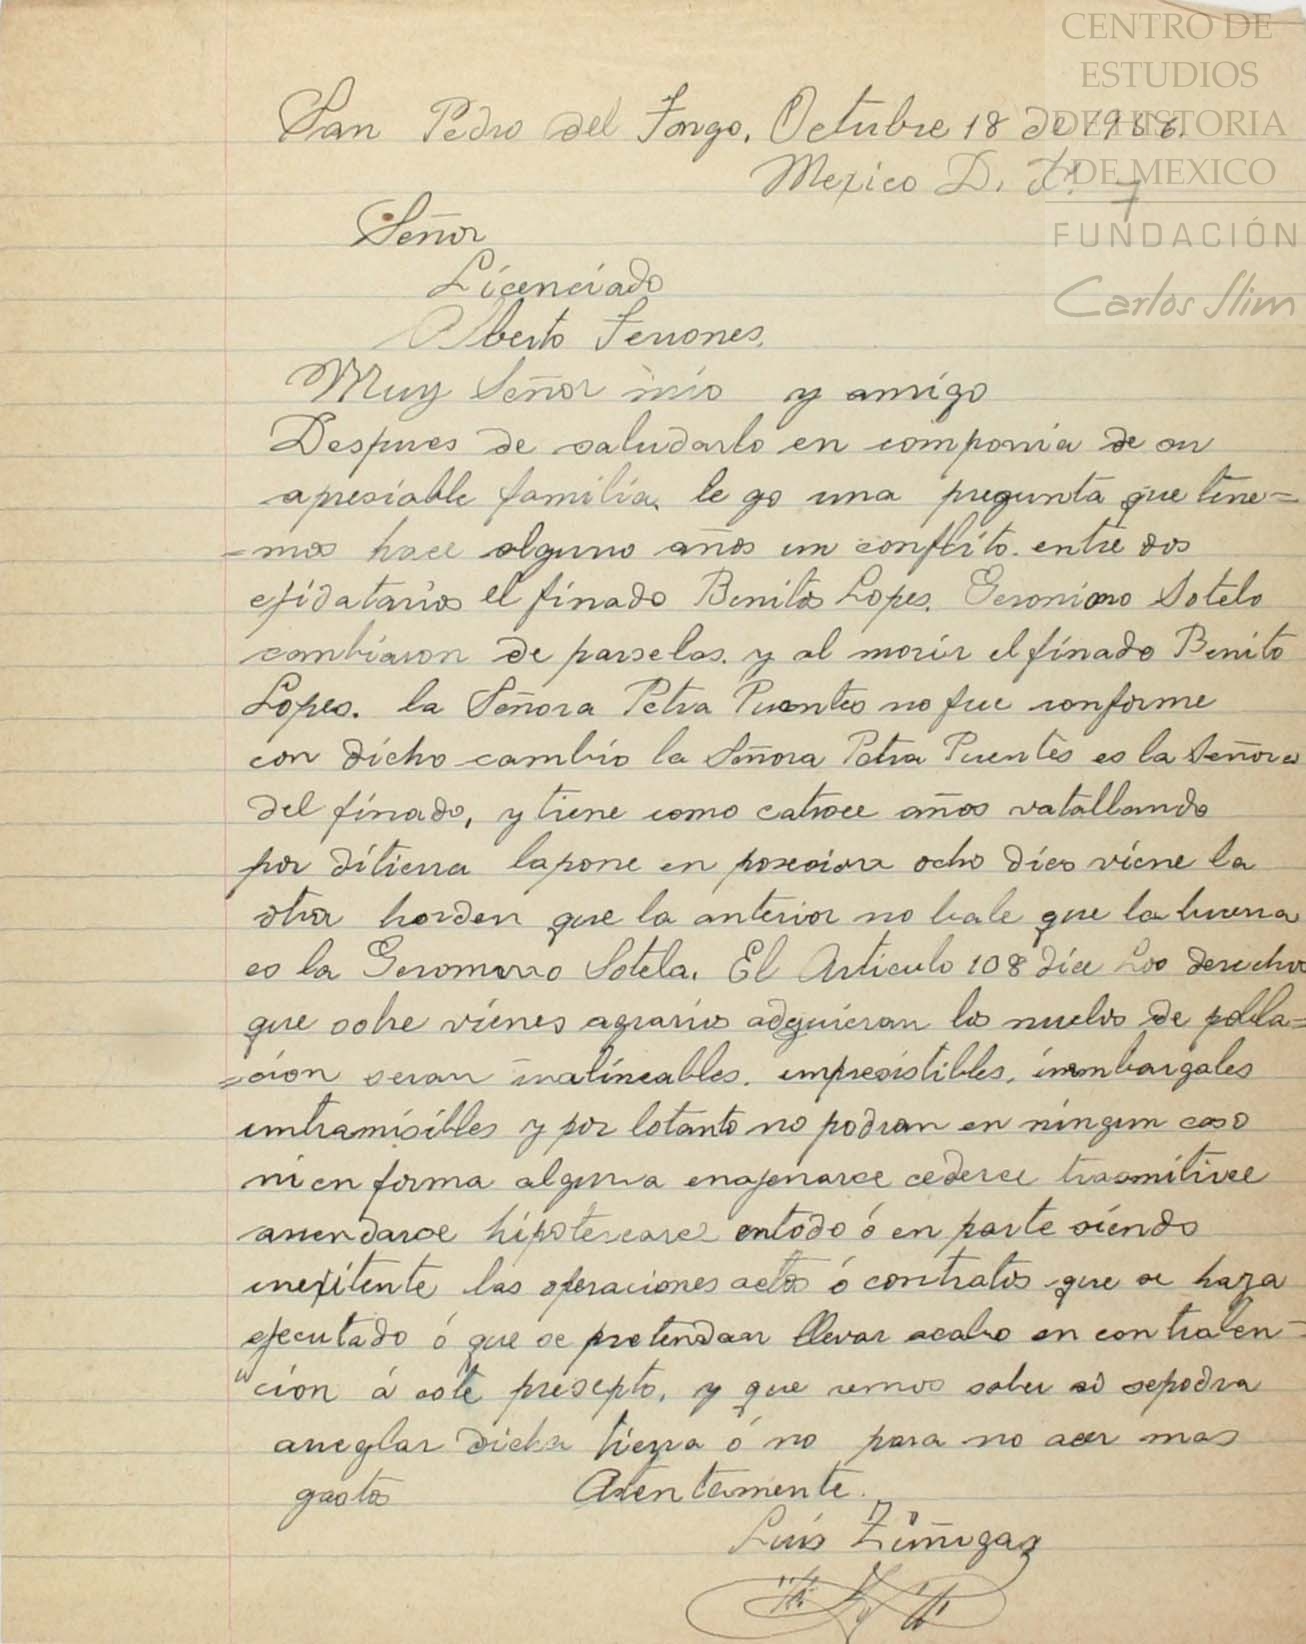 CENTRO DE
ESTUDIOS
DE HISTORIA
DE MEXICO
FUNDACIÓN
Carlos Slim
San Pedro del Tongo, Octubre 18 de 1966.
Mexico D. F. 7
Señor
Licenciado
Alberto Terrones.
Muy Señor mio y amigo
Despues de saludarlo en componia de su
apresiable familia, le go una pregunta que tene=
=mos hace alguno años un conflito. entre dos
ejidatarios el finado Benito Lopes. Geronimo Sotelo
cambiaron de parselas. y al morir el finado Benito
Lopes. la Señora Petra Puentes no fue conforme
con dicho cambio la Señora Petra Puentes es la Señora
del finado, y tiene como catroce años vatallando
por ditierra lapone en posesion ocho dias viene la
otra horden que la anterior no bale que la buena
es la Geromino Sotela. El Articulo 108 dice Los derechos
que sobre vienes agrarios adquieran los nuclos de pobla=
=cion seran inalineables. impresistibles. inembargales
intramisibles y por lotanto no podran en ningun caso
ni en forma alguna enagenarce cederce trasmitirce
arrendarce hipotecarce entodo ó en parte siendo
inexitente las operaciones actos ó contratos que se haza
ejecutado ó que se pretendaan llevar acabo en contraben=
"cion á este presepto, y que remos saber si sepodra
arreglar dicha tierra ó no para no acer mas
gastos Atentamente.
Luis Zuñigaz